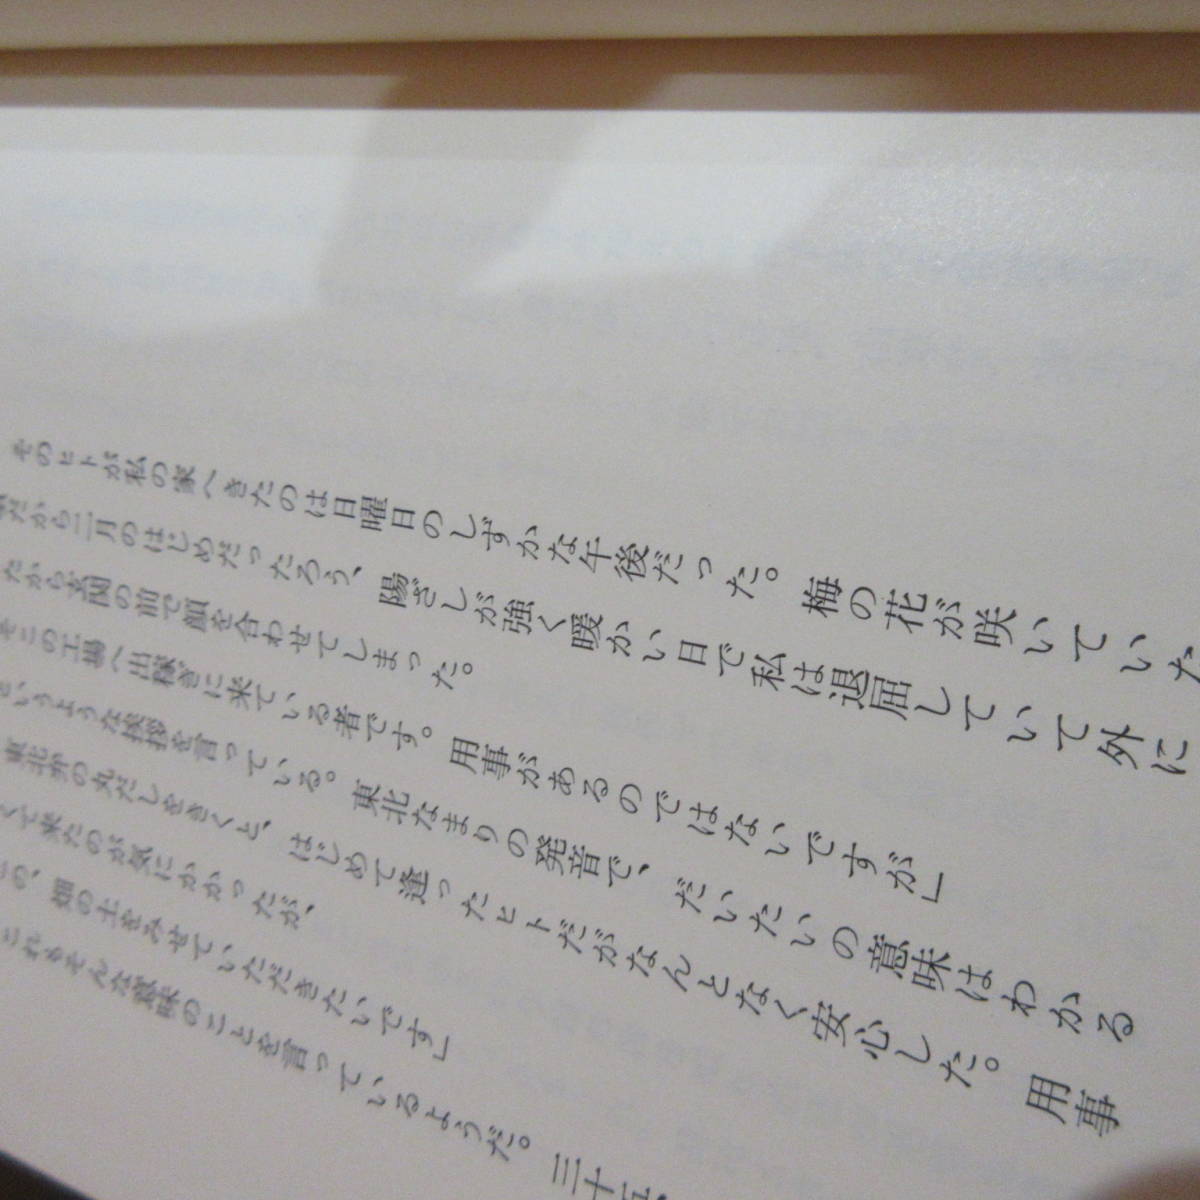 そのヒトが私の家へきたのは日曜日のしずかな午後だった。梅の花が咲いていた
だから二月のはじめだったろう、陽ざしが強く暖かい日で私は退屈していて外に
たから玄関の前で顔を合わせてしまった。
そこの工場へ出稼ぎに来ている者です。用事があるのではないですが」
というような挨拶を言っている。東北なまりの発音で、だいたいの意味はわかる
東北弁の丸だしをきくと、はじめて逢ったヒトだがなんとなく安心した。用事
くて来たのが気にかかったが、
この、畑の土をみせていただきたいです」
これもそんな意味のことを言っているようだ。三十五、